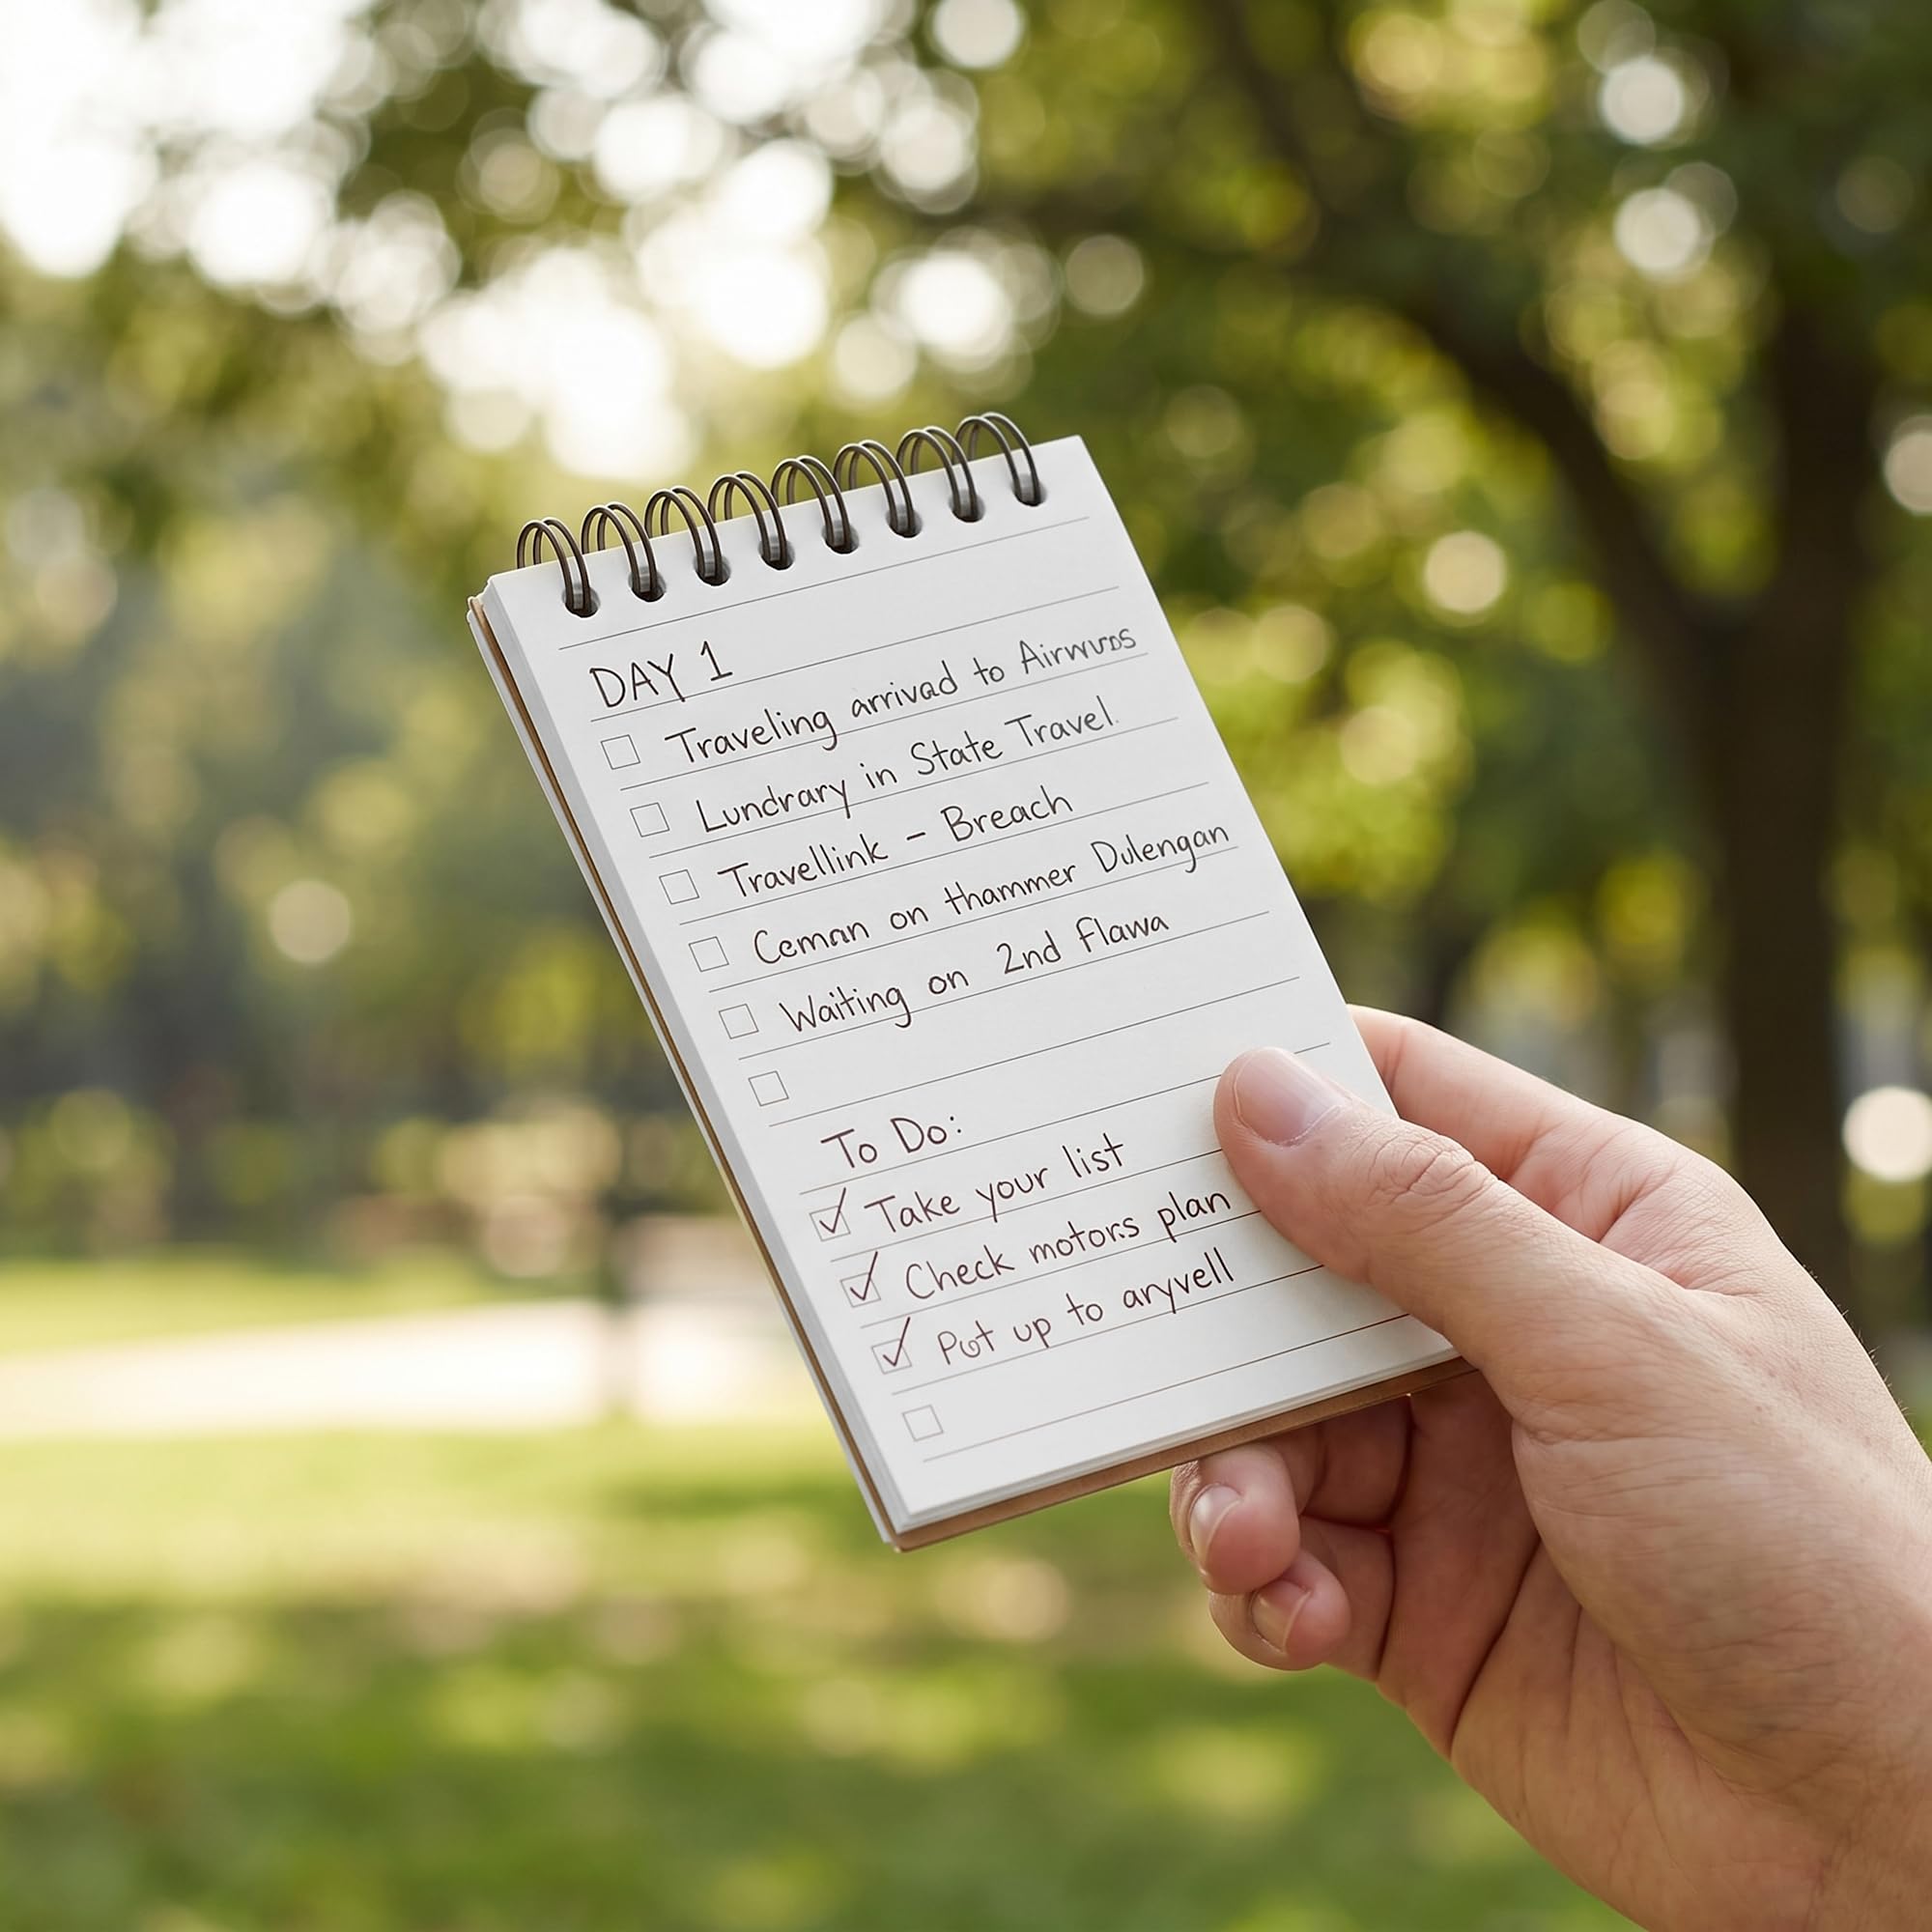 DAY 1
Traveling arrivad to
Lundrary in State Travel.
Travellink - Breach
Ceman on thammer Dulengan
Waiting on 2nd Flawa
To Do:
Take your list
Check motors plan
Put up to aryvell